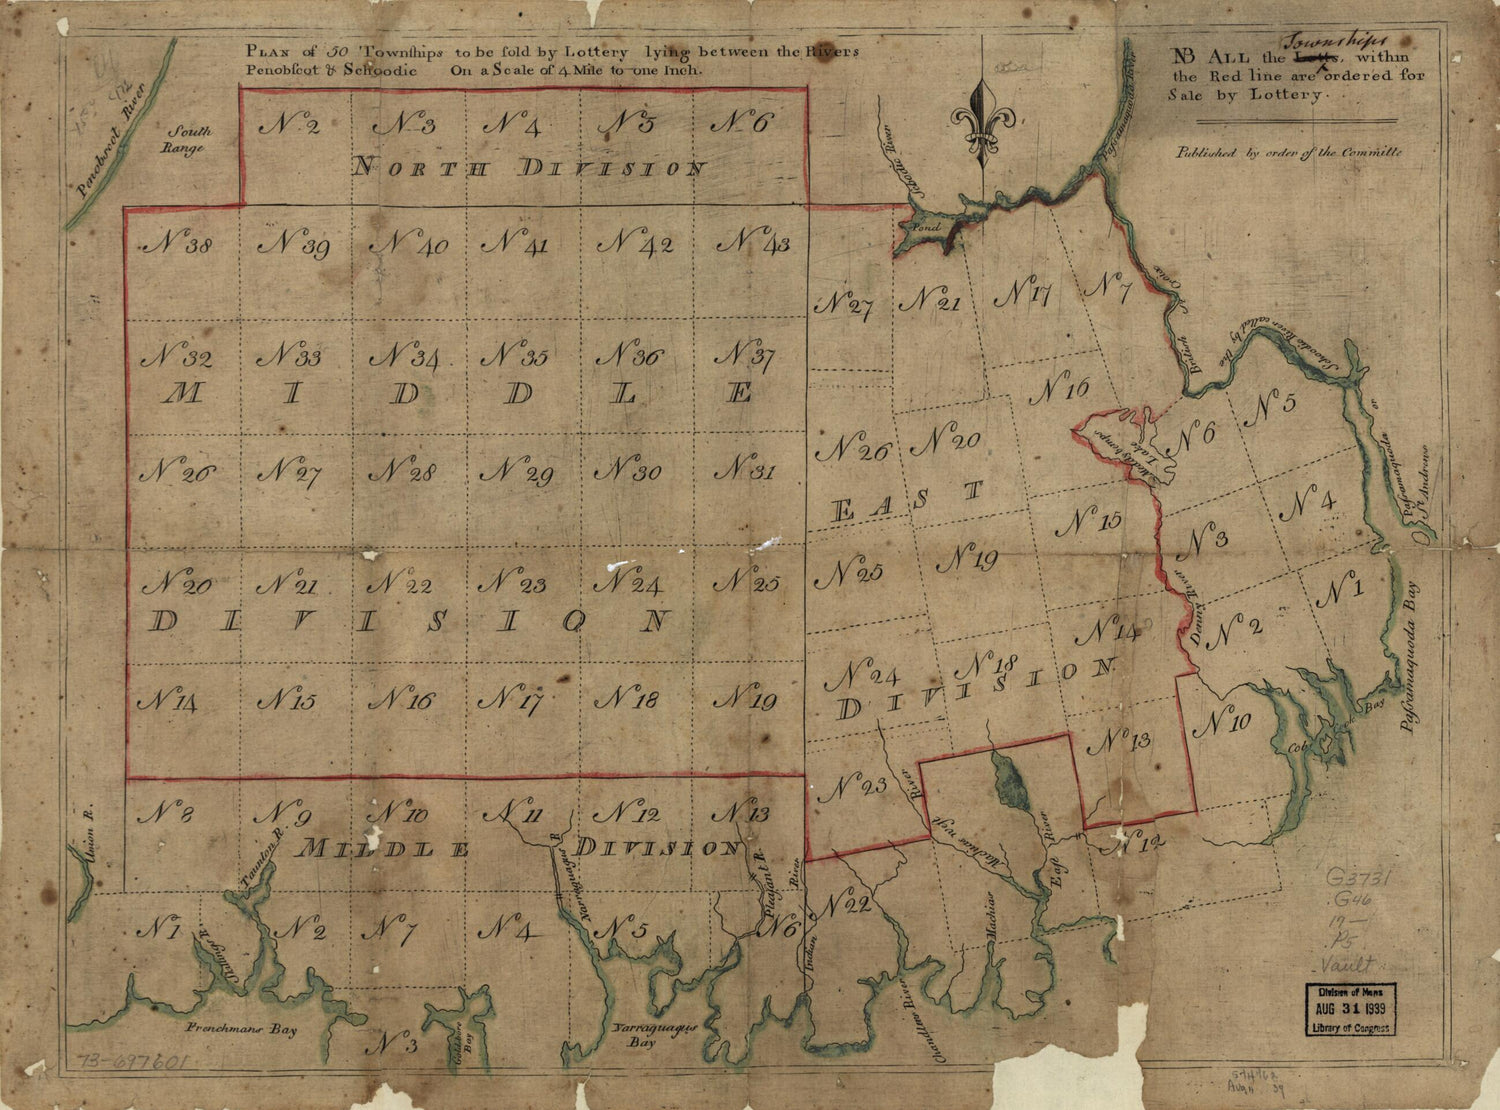 PLAN of 50 Townſhips to be ſold by Lottery lying between the Rivers
Penobſcot & Schoodic On a Scale of 4 Mile to one Inch.
Townships
NB ALL the Lotts, within
the Red line are ordered for
Sale by Lottery.
Published by order of the Committe
Penobscot River
South
Range
N 2 N 3 N 4 N 5 N 6
NORTH DIVISION
Schoodic River
Passamaquoda River
Pond
N 38 N 39 N 40 N 41 N 42 N 43
N 27 N 21 N 17 N 7
St Croix
British
Schoodic River called by the
or
Passamaquoda
St Andrews
N 32 N 33 N 34 N 35 N 36 N 37
MIDDLE
N 16 N 6 N 5
Lake
N 26 N 27 N 28 N 29 N 30 N 31
N 26 N 20
EAST
N 15 N 3 N 4
N 20 N 21 N 22 N 23 N 24 N 25
DIVISION
N 25 N 19
Denny River
N 14 N 2 N 1
Passamaquoda Bay
N 14 N 15 N 16 N 17 N 18 N 19
N 24 N 18
DIVISION
N 13 N 10
Cobscook Bay
N 8 N 9 N 10 N 11 N 12 N 13
MIDDLE DIVISION
N 23
Machias West River
East River
N 12
Union R.
Taunton R.
Narraguagus R
Pleasant R.
Indian River
N 1 N 2 N 7 N 4 N 5 N 6 N 22
Machias
Chandlers River
Frenchmans Bay
N 3
Goldsboro
Bay
Narraguagus
Bay
G3731
.G46
17—
.P5
Vault
Division of Maps
AUG 31 1939
Library of Congress
73-697601